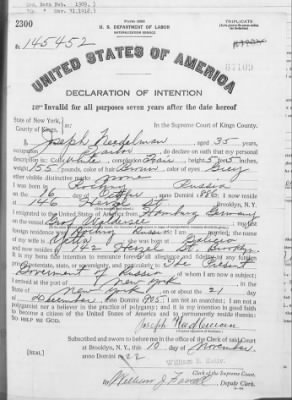 2300
Form 2203
U. S. DEPARTMENT OF LABOR
NATURALIZATION SERVICE
TRIPLICATE
No. 145452
UNITED STATES OF AMERICA
DECLARATION OF INTENTION
Invalid for all purposes seven years after the date hereof
State of New York,
County of Kings,
ss:
In the Supreme Court of Kings County.
I, Joseph Needelman, aged 35 years,
occupation Tailor, do declare on oath that my personal
description is: Color White, complexion Fair, height 5 feet 5 inches,
weight 155 pounds, color of hair Brown, color of eyes Grey
other visible distinctive marks None
I was born in Russia
on the 16 day of, anno Domini 1886; I now reside
at 146 Herzl St, Brooklyn, N.Y.
I emigrated to the United States of America from Hamburg Germany
on the vessel; my last
foreign residence was Russia; I am married; the name
of my wife is; she was born at Galicia
and now resides at 142 Herzl St. Brooklyn.
It is my bona fide intention to renounce forever all allegiance and fidelity to any foreign
prince, potentate, state, or sovereignty, and particularly to The Present
Government of Russia, of whom I am now a subject;
I arrived at the port of New York, in the
State of New York, on or about the 21 day
of December, anno Domini 1905; I am not an anarchist; I am not a
polygamist nor a believer in the practice of polygamy; and it is my intention in good faith
to become a citizen of the United States of America and to permanently reside therein:
SO HELP ME GOD.
Subscribed and sworn to before me in the office of the Clerk of said Court
at Brooklyn, N.Y., this 10 day of November,
anno Domini 1922
[SEAL]
Clerk of the Supreme Court.
By William J. , Deputy Clerk.